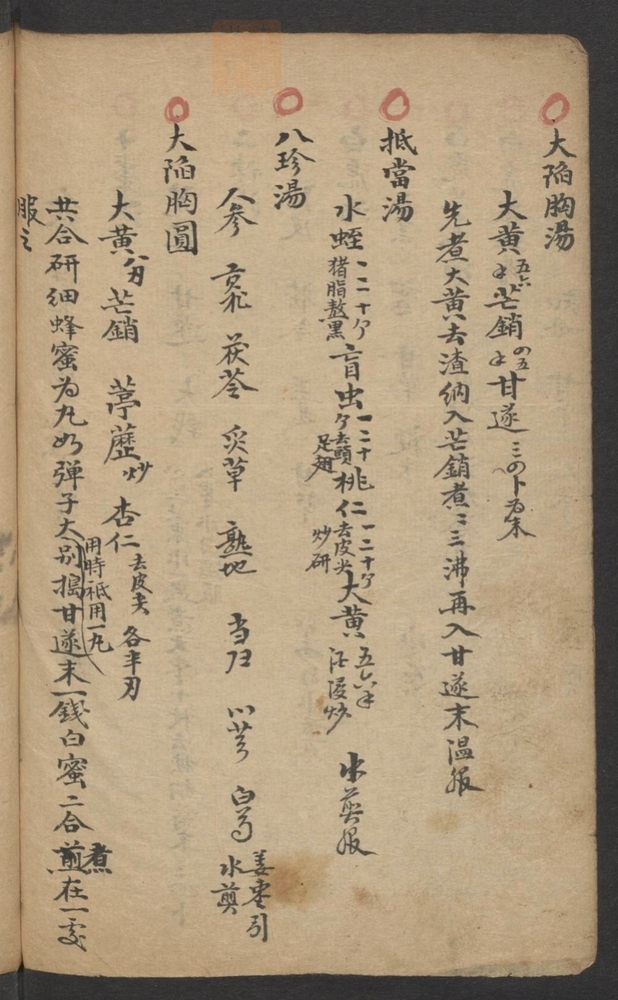 大陷胸湯
大黃五六 芒銷 五 甘遂 末
先煮大黃去渣納入芒銷煮二三沸再入甘遂末温服
抵當湯
水蛭一二十 猪脂熬黑 盲虫一二十 去頭足翅 桃仁一二十 去皮尖炒研 大黃五六 酒浸炒 水煎服
八珍湯
人参 茯苓 炙草 熟地 当归 川芎 白芍 姜枣引 水煎
大陷胸圓
大黃 芒銷 葶藶炒 杏仁去皮尖 各半
共合研細蜂蜜为丸如弹子大别搗甘遂末一錢白蜜二合煎煮在一处
用時祗用一丸
服之